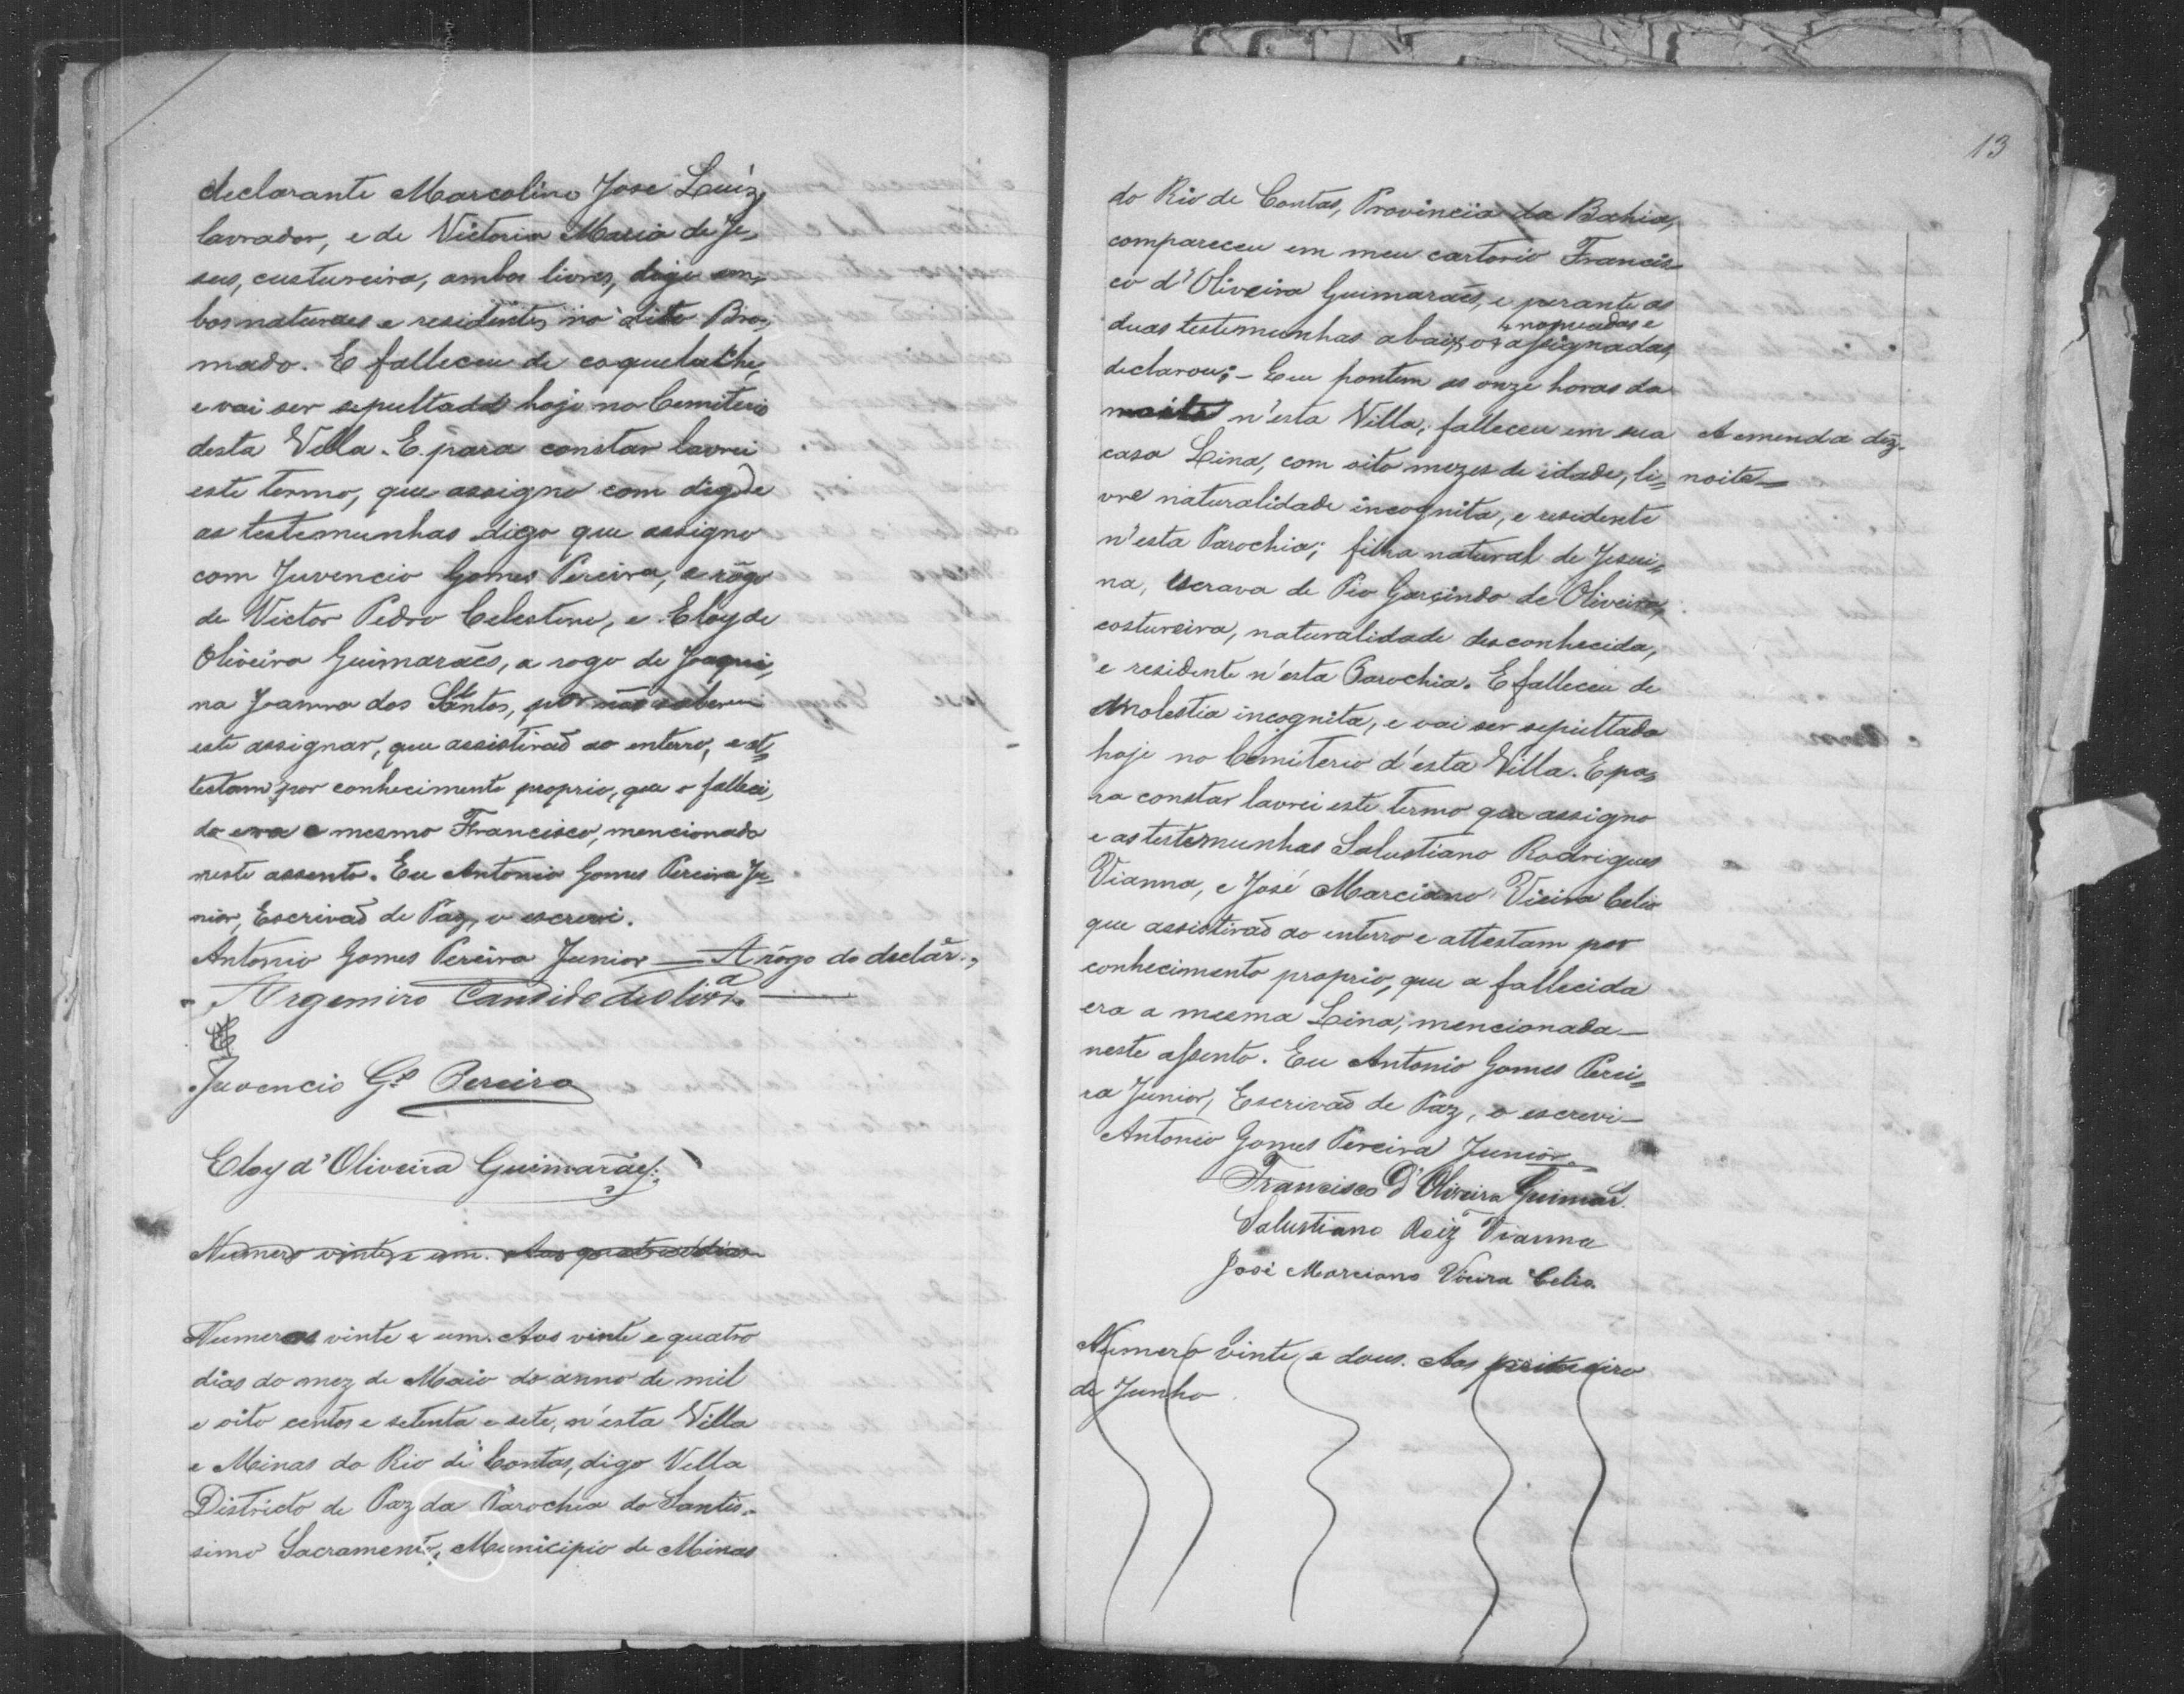 declarante Marcolino Jose Luiz,
lavrador, e de Victoria Maria de Je-
sus, custureira, ambos livres, digo am-
bos naturaes e residentes no dito Bro-
mado. E falleceu de coqueluche,
e vai ser sepultado hoje no Cemiterio
desta Villa. E para constar lavrei
este termo, que assigno com digo e
as testemunhas digo que assigno
com Juvencio Gomes Pereira, a rôgo
de Victor Pedro Celestino, e Eloy de
Oliveira Guimarães, a rogo de Joaqui-
na Joanna dos Santos, por não saberem
este assignar, que assistirão ao enterro, e at-
testam por conhecimento proprio, que o falleci-
do era o mesmo Francisco, mencionado
neste assento. Eu Antonio Gomes Pereira Ju-
nior, Escrivão de Paz, o escrevi.
Antonio Gomes Pereira Junior — A rôgo do declar.,
Argemiro Candido de Olivra. —
Juvencio Gs. Pereira
Eloy d'Oliveira Guimarães.
Numero vinte e um. Aos quatro dias
Numero vinte e um. Aos vinte e quatro
dias do mez de Maio do anno de mil
e oito centos e setenta e sete, n'esta Villa
e Minas do Rio de Contas, digo Villa
Districto de Paz da Parochia do Santis-
simo Sacramento, Municipio de Minas
13
do Rio de Contas, Provincia da Bahia,
compareceu em meu cartorio Francis-
co d'Oliveira Guimarães, e perante as
nomeadas e
duas testemunhas abaixo assignadas,
declarou: - Que hontem as onze horas da
noite n'esta Villa, falleceu em sua
A emenda diz-
casa Lina, com oito mezes de idade, li-
noite—
vre naturalidade incognita, e residente
n'esta Parochia; filha natural de Jesui-
na, escrava de Pio Garcindo de Oliveira,
costureira, naturalidade desconhecida,
e residente n'esta Parochia. E falleceu de
molestia incognita, e vai ser sepultada
hoje no Cemiterio d'esta Villa. E pa-
ra constar lavrei este termo que assigno
e as testemunhas Salustiano Rodrigues
Vianna, e José Marciano Vieira Celio
que assistirão ao enterro e attestam por
conhecimento proprio, que a fallecida
era a mesma Lina, mencionada—
neste assento. Eu Antonio Gomes Perei-
ra Junior, Escrivão de Paz, o escrevi—
Antonio Gomes Pereira Junior.
Francisco d'Oliveira Guimars.
Salustiano Roiz Vianna
José Marciano Vieira Celio.
Numero vinte e dous. Aos primeiro
de Junho